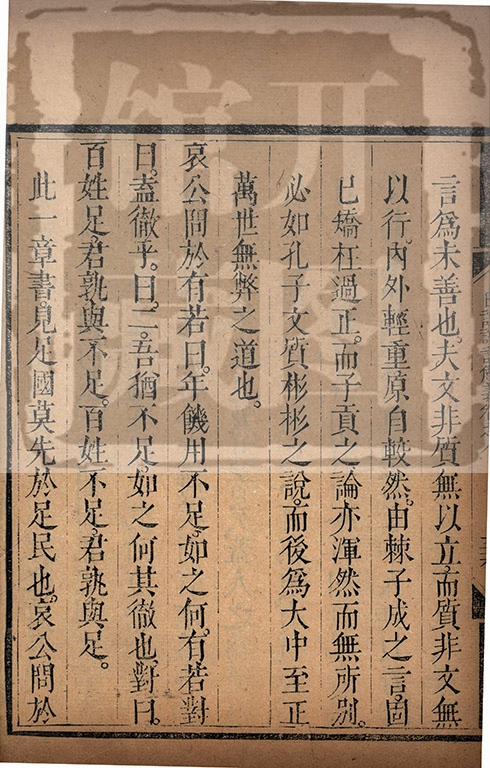 言爲未善也。夫文非質無以立。而質非文無
以行。內外輕重原自較然。由棘子成之言。固
已矯枉過正。而子貢之論亦渾然而無所別。
必如孔子文質彬彬之說。而後爲大中至正
萬世無弊之道也。
哀公問於有若曰。年饑用不足。如之何。有若對
曰。盍徹乎。曰。二。吾猶不足。如之何其徹也。對曰。
百姓足。君孰與不足。百姓不足。君孰與足。
此一章書。見足國莫先於足民也。哀公問於